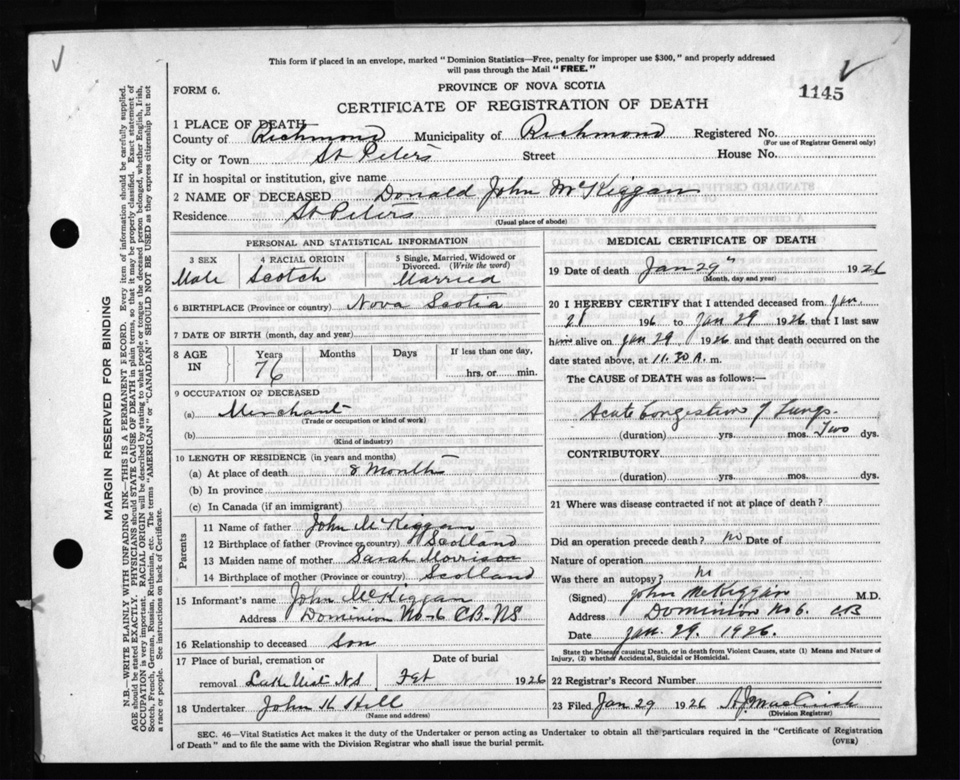 This form if placed in an envelope, marked "Dominion Statistics—Free, penalty for improper use $300," and properly addressed
will pass through the Mail "FREE."
1145
FORM 6.
PROVINCE OF NOVA SCOTIA
CERTIFICATE OF REGISTRATION OF DEATH
1 PLACE OF DEATH
County of Richmond Municipality of Richmond Registered No.
(For use of Registrar General only)
City or Town St Peters Street House No.
If in hospital or institution, give name
2 NAME OF DECEASED Donald John McKiggan
Residence St Peters
(Usual place of abode)
PERSONAL AND STATISTICAL INFORMATION
3 SEX 4 RACIAL ORIGIN 5 Single, Married, Widowed or
Divorced. (Write the word)
Male Scotch Married
6 BIRTHPLACE (Province or country) Nova Scotia
7 DATE OF BIRTH (month, day and year)
8 AGE IN Years Months Days If less than one day,
76 hrs. or min.
9 OCCUPATION OF DECEASED
(a) Merchant
(Trade or occupation or kind of work)
(b)
(Kind of industry)
10 LENGTH OF RESIDENCE (in years and months)
(a) At place of death 8 Months
(b) In province
(c) In Canada (if an immigrant)
Parents
11 Name of father John McKiggan
12 Birthplace of father (Province or country) Scotland
13 Maiden name of mother Sarah Morrison
14 Birthplace of mother (Province or country) Scotland
15 Informant's name John McKiggan
Address Dominion No-6 CB-NS
16 Relationship to deceased son
17 Place of burial, cremation or Date of burial
removal N.S Feb 1926
18 Undertaker John H Hill
(Name and address)
MEDICAL CERTIFICATE OF DEATH
19 Date of death Jan 29" 1926
(Month, day and year)
20 I HEREBY CERTIFY that I attended deceased from Jan.
196 to Jan 29 1926 that I last saw
him alive on Jan 29 1926 and that death occurred on the
date stated above, at 11.30 A. m.
The CAUSE OF DEATH was as follows:—
Acute Congestion of Lungs.
(duration) yrs. mos. Two dys.
CONTRIBUTORY
(duration) yrs. mos. dys.
21 Where was disease contracted if not at place of death?
Did an operation precede death? no Date of
Nature of operation
Was there an autopsy? No
(Signed) John McKiggan M.D.
Address Dominion No 6. CB
Date Jan. 29. 1926.
State the Disease causing Death, or in death from Violent Causes, state (1) Means and Nature of
Injury, (2) whether Accidental, Suicidal or Homicidal.
22 Registrar's Record Number
23 Filed Jan 29 1926
(Division Registrar)
SEC. 46—Vital Statistics Act makes it the duty of the Undertaker or person acting as Undertaker to obtain all the particulars required in the "Certificate of Registration
of Death" and to file the same with the Division Registrar who shall issue the burial permit.
(OVER)
MARGIN RESERVED FOR BINDING
N.B.—WRITE PLAINLY WITH UNFADING INK—THIS IS A PERMANENT RECORD. Every item of information should be carefully supplied.
AGE should be stated EXACTLY. PHYSICIANS should STATE CAUSE OF DEATH in plain terms, so that it may be properly classified. Exact statement of
OCCUPATION is very important. RACIAL ORIGIN will be described by stating to what people or tongue the deceased person belonged, whether English, Irish,
Scotch, French, German, Russian, Ruthenian, etc. The terms "AMERICAN" or "CANADIAN" SHOULD NOT BE USED as they express citizenship but not
a race or people. See instructions on back of Certificate.